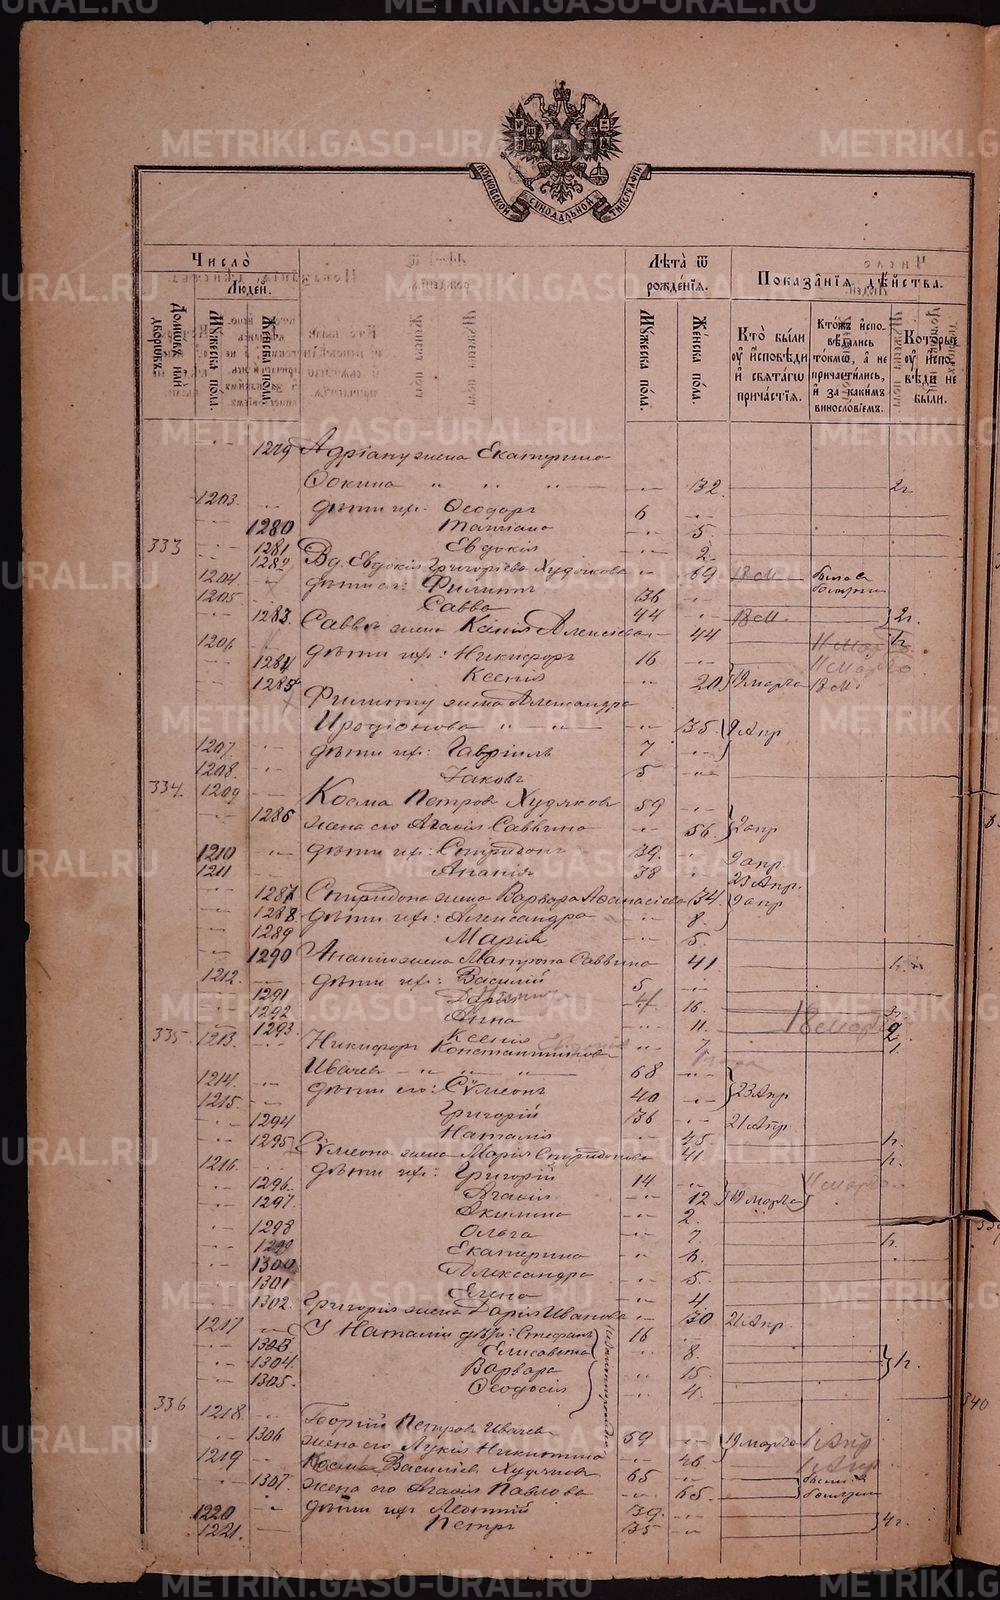 МОСКОВСКОЙ СѴНОДАЛЬНОЙ ТИПОГРАФІИ
Число̀
Людей.
Домовъ или дворовъ.
Мужеска пола.
Женска пола.
Лѣта ѿ рожденїя.
Мужеска пола.
Женска пола.
Показанїя дѣйства.
Кто̀ были оу҆ исповѣди и҆ свѧтагѡ причастїя.
Кто́жъ исповѣдались токмѡ, а не причастились, и҆ за какимъ винословїемъ.
Которые оу҆ исповѣди не были.
1279 Адріану жена Екатерина
Фокина " " " 32. 2г
1203. дѣти ихъ: Ѳеодоръ 6
1280 Татіана 5.
1281 Евдокія 2.
333 1282 Вд. Евдокія Григоріева Худякова 69 18 М.
1204. дѣти ея: Филиппъ 36
1205. Савва 44
1283. Саввы жена Ксенія Алексіева 44 18 М. 2г.
1206 дѣти ихъ: Никифоръ 16 11 марта
1284 Ксенія 20 19 марта 18 М.
1285 Филиппу жена Александра
Иродіонова " " " 35. 9 Апр
1207. дѣти ихъ: Гавріилъ 7
1208. Іаковъ 5
334. 1209 Косма Петровъ Худяковъ 59
1286 жена его Агафія Саввина 56. 2 апр
1210 дѣти ихъ: Спиридонъ 39. 9 апр.
1211 Ананія 38 23 Апр.
1287 Спиридона жена Варвара Аѳанасіева 34. 9 апр
1288 дѣти ихъ: Александра 8.
1289 Марія 5.
1290 Ананію жена Матрона Саввина 41
1212. дѣти ихъ: Василій 5
1291 Дарія 16.
1292 Анна 11.
1293. Ксенія 7
335 1213. Никифоръ Константиновъ
Ивачевъ " " " 68
1214. дѣти его: Сѵмеонъ 40 23 Апр
1215. Григорій 36 21 Апр.
1294 Наталія 45.
1295 Сѵмеона жена Марія Спиридонова 41
1216. дѣти ихъ: Григорій 14 11 марта
1296. Агафія 12 19 марта
1297. Акилина 2.
1298 Ольга 7.
1299 Екатерина 6.
1300 Александра 5.
1301 Елена 4
1302. Григорія жена Дарія Иванова 30 21 Апр.
1217 У Наталіи дѣти: Стефанъ 16
1303 Елисавета 8.
1304. Варвара 15.
1305. Ѳеодосія 4.
336 1218. Георгій Петровъ Ивачевъ 69 19 марта 1 Апр
1306 жена его Лукія Никитина 46 1 Апр
1219 Косма Василіевъ Худяковъ 65
1307. жена его Агафія Павлова 65.
1220 дѣти ихъ Леонтій 39. 4г.
1221. Петръ 35
METRIKI.GASO-URAL.RU